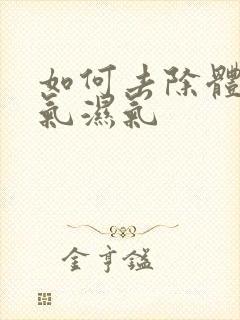 如何去除體
氣濕氣
金亨鎰